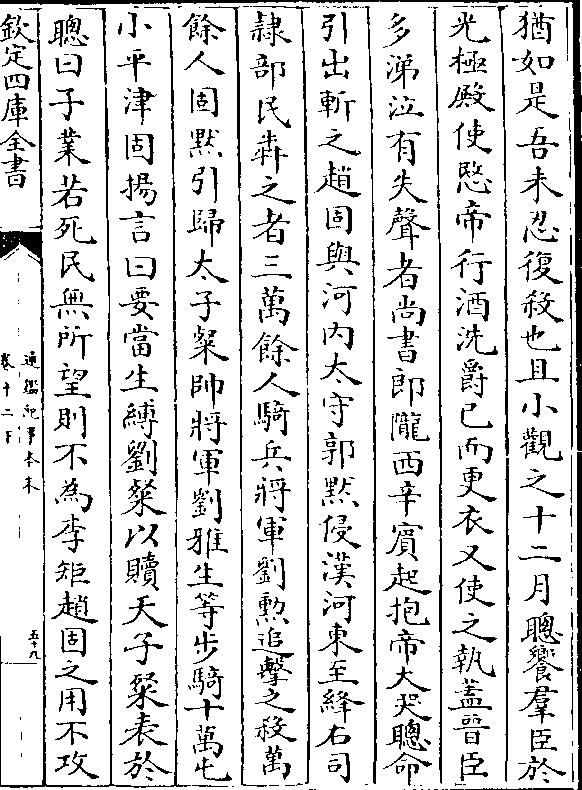 猶如是吾未忍復殺也且小觀之十二月聰饗羣臣於
光極殿使愍帝行酒洗爵已而更衣又使之執蓋晉臣
多涕泣有失聲者尚書郎隴西辛賓起抱帝大哭聰命
引出斬之趙固與河内太守郭默侵漢河東至絳右司
隸部民犇之者三萬餘人騎兵將軍劉勲追擊之殺萬
餘人固默引歸太子粲帥將軍劉雅生等步騎十萬屯
小平津固揚言曰要當生縛劉粲以贖天子粲表於
聰曰子業若死民無所望則不為李矩趙固之用不攻
欽定四庫全書
通鑑紀事本末
卷十二下
五十九